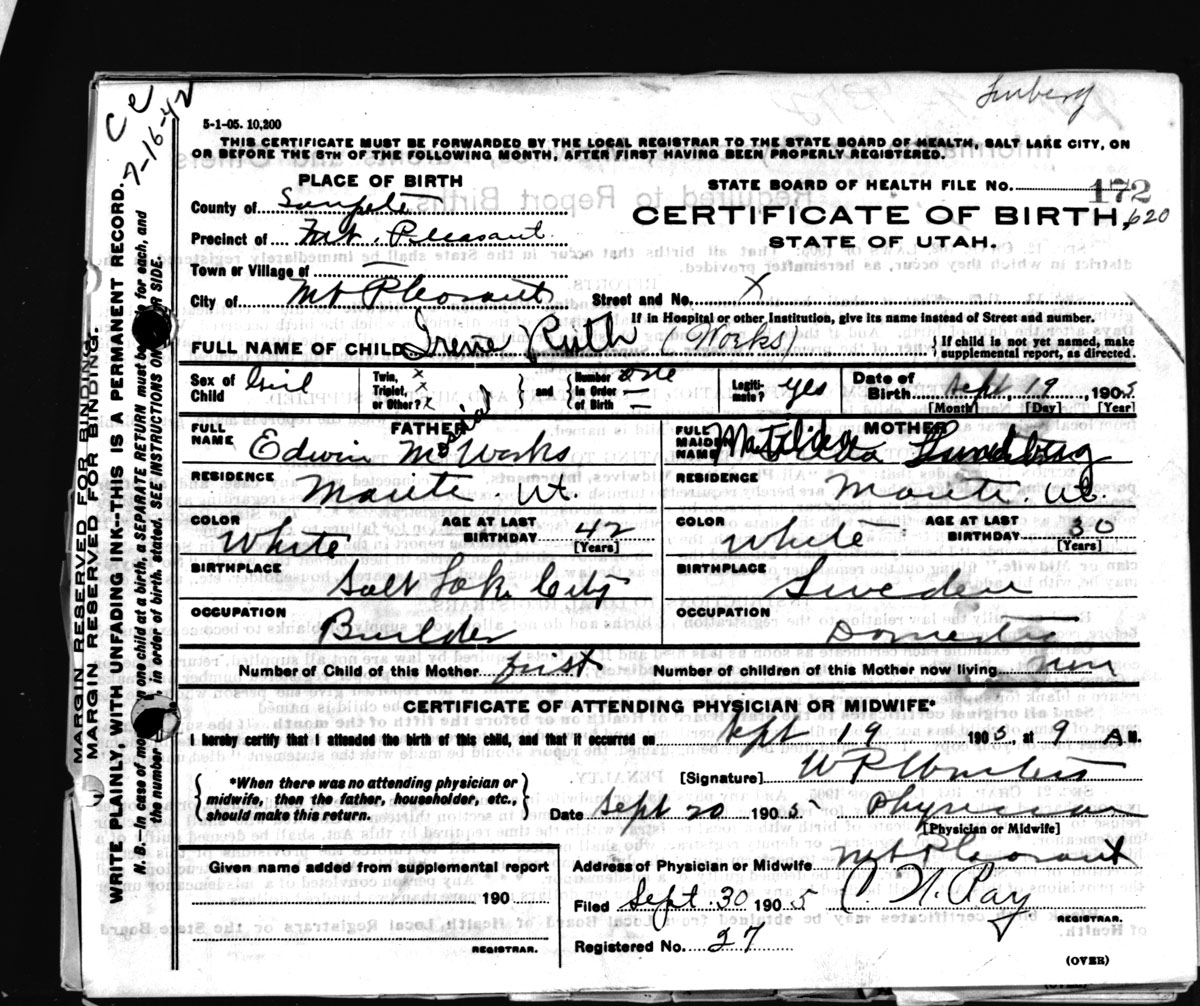 Ce
7-16-42
5-1-05. 10,200
THIS CERTIFICATE MUST BE FORWARDED BY THE LOCAL REGISTRAR TO THE STATE BOARD OF HEALTH, SALT LAKE CITY, ON
OR BEFORE THE 5TH OF THE FOLLOWING MONTH, AFTER FIRST HAVING BEEN PROPERLY REGISTERED.
PLACE OF BIRTH
STATE BOARD OF HEALTH FILE No. 172
County of Sanpete
CERTIFICATE OF BIRTH, 620
Precinct of Mt. Pleasant
STATE OF UTAH.
Town or Village of —
City of Mt Pleasant Street and No. X
If in Hospital or other Institution, give its name instead of Street and number.
FULL NAME OF CHILD Irene Ruth (Works) { If child is not yet named, make
supplemental report, as directed.
Sex of Child Girl Twin, x Triplet, x or Other? x } and { Number in Order of Birth one — Legitimate? yes Date of Birth Sept, 19, 1905
[Month] [Day] [Year]
FATHER MOTHER
FULL NAME Edwin M Works FULL MAIDEN NAME Matilda
RESIDENCE Manti. Ut. RESIDENCE Manti. Ut.
COLOR White AGE AT LAST BIRTHDAY 42 [Years] COLOR White AGE AT LAST BIRTHDAY 30 [Years]
BIRTHPLACE Salt Lake City BIRTHPLACE Sweden
OCCUPATION Builder OCCUPATION Domestic
Number of Child of this Mother first Number of children of this Mother now living
CERTIFICATE OF ATTENDING PHYSICIAN OR MIDWIFE*
I hereby certify that I attended the birth of this child, and that it occurred on Sept 19 1905, at 9 A M.
{ *When there was no attending physician or
midwife, then the father, householder, etc.,
should make this return. }
[Signature]
Date Sept 20 1905 Physician
[Physician or Midwife]
Given name added from supplemental report
190
REGISTRAR.
Address of Physician or Midwife Mt Pleasant
Filed Sept. 30 1905 C. N.
REGISTRAR.
Registered No. 27
(OVER)
MARGIN RESERVED FOR BINDING.
MARGIN RESERVED FOR BINDING.
WRITE PLAINLY, WITH UNFADING INK--THIS IS A PERMANENT RECORD.
N. B.—In case of more than one child at a birth, a SEPARATE RETURN must be for each, and
the number, in order of birth, stated. SEE INSTRUCTIONS ON OTHER SIDE.